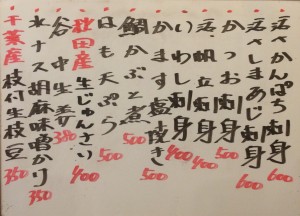 活さしかんぱち刺身 600
活さしまあじ刺身 600
かつお刺身 500
活帆立刺身 400
いわし刺身 400
かます塩焼き 500
鯛かぶと煮 500
はも天ぷら 500
秋田産 生じゅんさい 400
谷中生姜 380
水ナス胡麻味噌かり 350
千葉産 枝付生枝豆 350